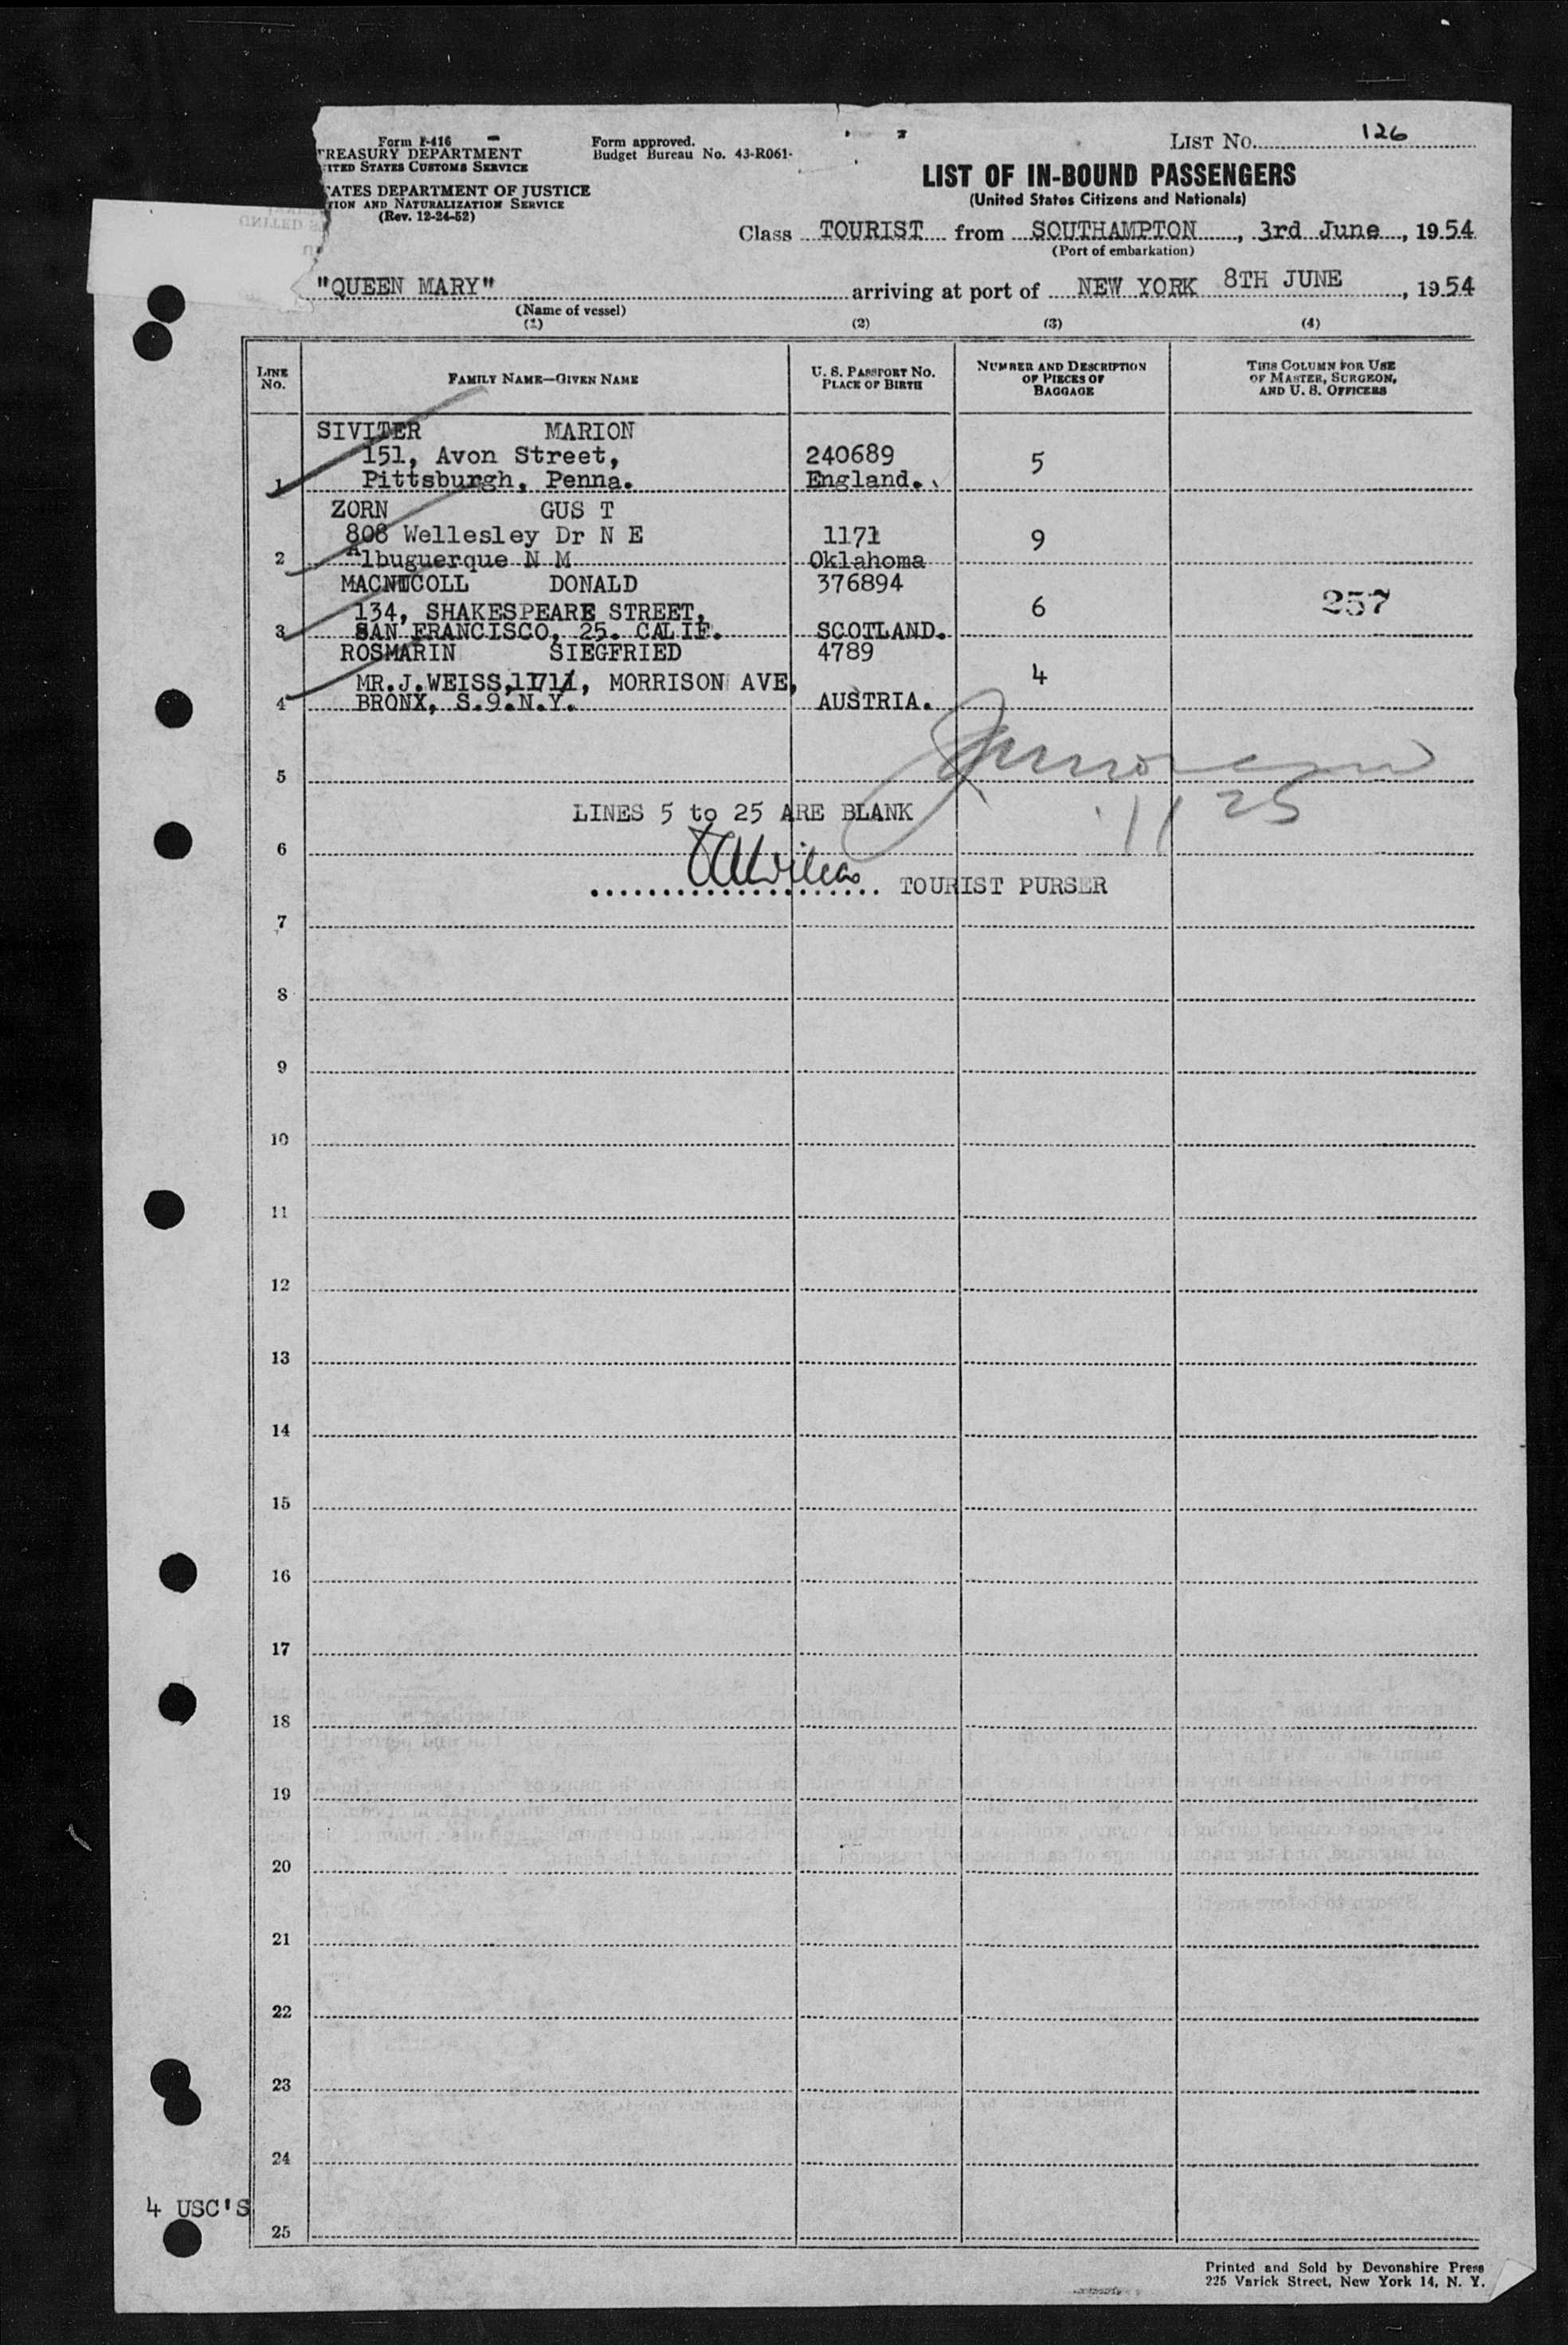 LIST No. 126
Form I-416
TREASURY DEPARTMENT
ITED STATES CUSTOMS SERVICE
Form approved.
Budget Bureau No. 43-R061-
ATES DEPARTMENT OF JUSTICE
TION AND NATURALIZATION SERVICE
(Rev. 12-24-52)
LIST OF IN-BOUND PASSENGERS
(United States Citizens and Nationals)
Class TOURIST from SOUTHAMPTON, 3rd June, 1954
(Port of embarkation)
"QUEEN MARY" arriving at port of NEW YORK 8TH JUNE, 1954
(Name of vessel)
(1) (2) (3) (4)
LINE No. FAMILY NAME—GIVEN NAME U. S. PASSPORT No. PLACE OF BIRTH NUMBER AND DESCRIPTION OF PIECES OF BAGGAGE THIS COLUMN FOR USE OF MASTER, SURGEON, AND U. S. OFFICERS
SIVITER MARION
151, Avon Street, 240689 5
1 Pittsburgh, Penna. England.
ZORN GUS T
808 Wellesley Dr N E 1171 9
2 Albuguerque N M Oklahoma
MACNICOLL DONALD 376894
134, SHAKESPEARE STREET, 6 257
3 SAN FRANCISCO, 25. CALIF. SCOTLAND.
ROSMARIN SIEGFRIED 4789
MR.J.WEISS,1171, MORRISON AVE, 4
4 BRONX, S.9.N.Y. AUSTRIA.
5
LINES 5 to 25 ARE BLANK
11 25
6
TOURIST PURSER
7
8
9
10
11
12
13
14
15
16
17
18
19
20
21
22
23
24
4 USC'S
25
Printed and Sold by Devonshire Press
225 Varick Street, New York 14, N. Y.